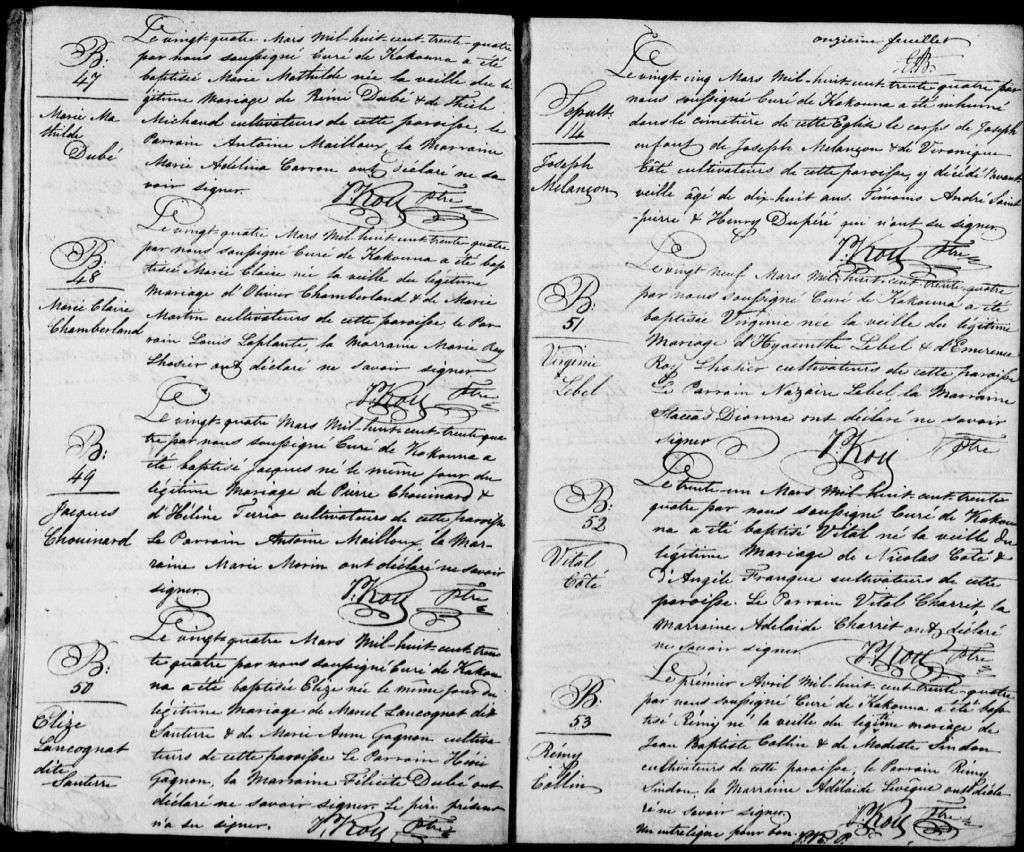 B.
47
Marie Ma
thilde
Dubé
Le vingt-quatre Mars Mil-huit-cent-trente-quatre
par nous soussigné Curé de Kakouna a été
baptisée Marie Mathilde née la veille du lé
gitime Mariage de Rémi Dubé & de Thècle
Michaud cultivateurs de cette paroisse, le
Parrain Antoine Mailloux, la Marraine
Marie Adelina Carron ont déclaré ne sa
voir signer.
Ptre
B.
48
Marie Claire
Chamberland
Le vingt-quatre Mars Mil-huit-cent-trente-quatre
par nous soussigné Curé de Kakouna a été bap
tisée Marie Claire née la veille du légitime
Mariage d'Olivier Chamberland & de Marie
Martin cultivateurs de cette paroisse, le Par
rain Louis Leplante, la Marraine Marie Roy
ont déclaré ne savoir signer
Ptre
B:
49
Jacques
Chouinard
Le vingt-quatre Mars Mil-huit-cent-trente-qua
tre par nous soussigné Curé de Kakouna a
été baptisé Jacques né le même jour du
légitime Mariage de Pierre Chouinard &
d'Hélène Terrio cultivateurs de cette paroisse
Le Parrain Antoine Mailloux, la Mar-
raine Marie Morin ont déclaré ne savoir
signer
Ptre
B:
50
Elize
Lancognat
dite
Santerre
Le vingt-quatre Mars Mil-huit cent tren
te quatre par nous soussigné Curé de Kakou
na a été baptisée Elize née le même jour du
légitime Mariage de Marcel Lancognat dit
Santerre & de Marie Anne Gagnon cultiva
teurs de cette paroisse Le Parrain Henri
Gagnon, la Marraine Félicité Dubé ont
déclaré ne savoir signer. Le père présent
n'a su signer.
Ptre
onzième feuillet
Sepult.
14
Joseph
Melançon
Le vingt-cinq Mars Mil-huit-cent-trente-quatre par
nous soussigné Curé de Kakouna a été inhumé
dans le cimetière de cette Eglise le corps de Joseph
enfant de Joseph Melançon & de Veronique
Côté cultivateurs de cette paroisse, y décédé l'avant
veille âgé de dix-huit ans. Témoins André Saint
pierre & Henry Dupéré qui n'ont su signer
Ptre
B:
51
Virginie
Lebel
Le vingt neuf Mars Mil-huit-cent-trente-quatre
par nous soussigné Curé de Kakouna a été
baptisée Virginie née la veille du légitime
Mariage d'Hyacinthe Lebel & d'Emerence
Roy cultivateurs de cette paroisse
Le Parrain Nazaire Lebel, la Marraine
Dionne ont déclaré ne savoir
signer
Ptre
B:
52
Vital
Côté
Le trente-un Mars Mil-huit-cent-trente
quatre par nous soussigné Curé de Kakou
na a été baptisé Vital né la veille du
légitime Mariage de Nicolas Côté &
d'Angèle Franque cultivateurs de cette
paroisse. Le Parrain Vital Charrit, la
Marraine Adelaide Charrit ont déclaré
ne savoir signer.
Ptre
B:
53
Rémy
Collin
Le prémier Avril Mil-huit-cent-trente-quatre
par nous soussigné Curé de Kakouna a été bap
tisé Rémy né la veille du légitime mariage de
Jean Baptiste Collin & de Modeste Sindon
cultivateurs de cette paroisse, le Parrain Rémy
Sindon, la Marraine Adelaide Levêque ont décla
ré ne savoir signer
Ptre
Un entreligne pour bon.